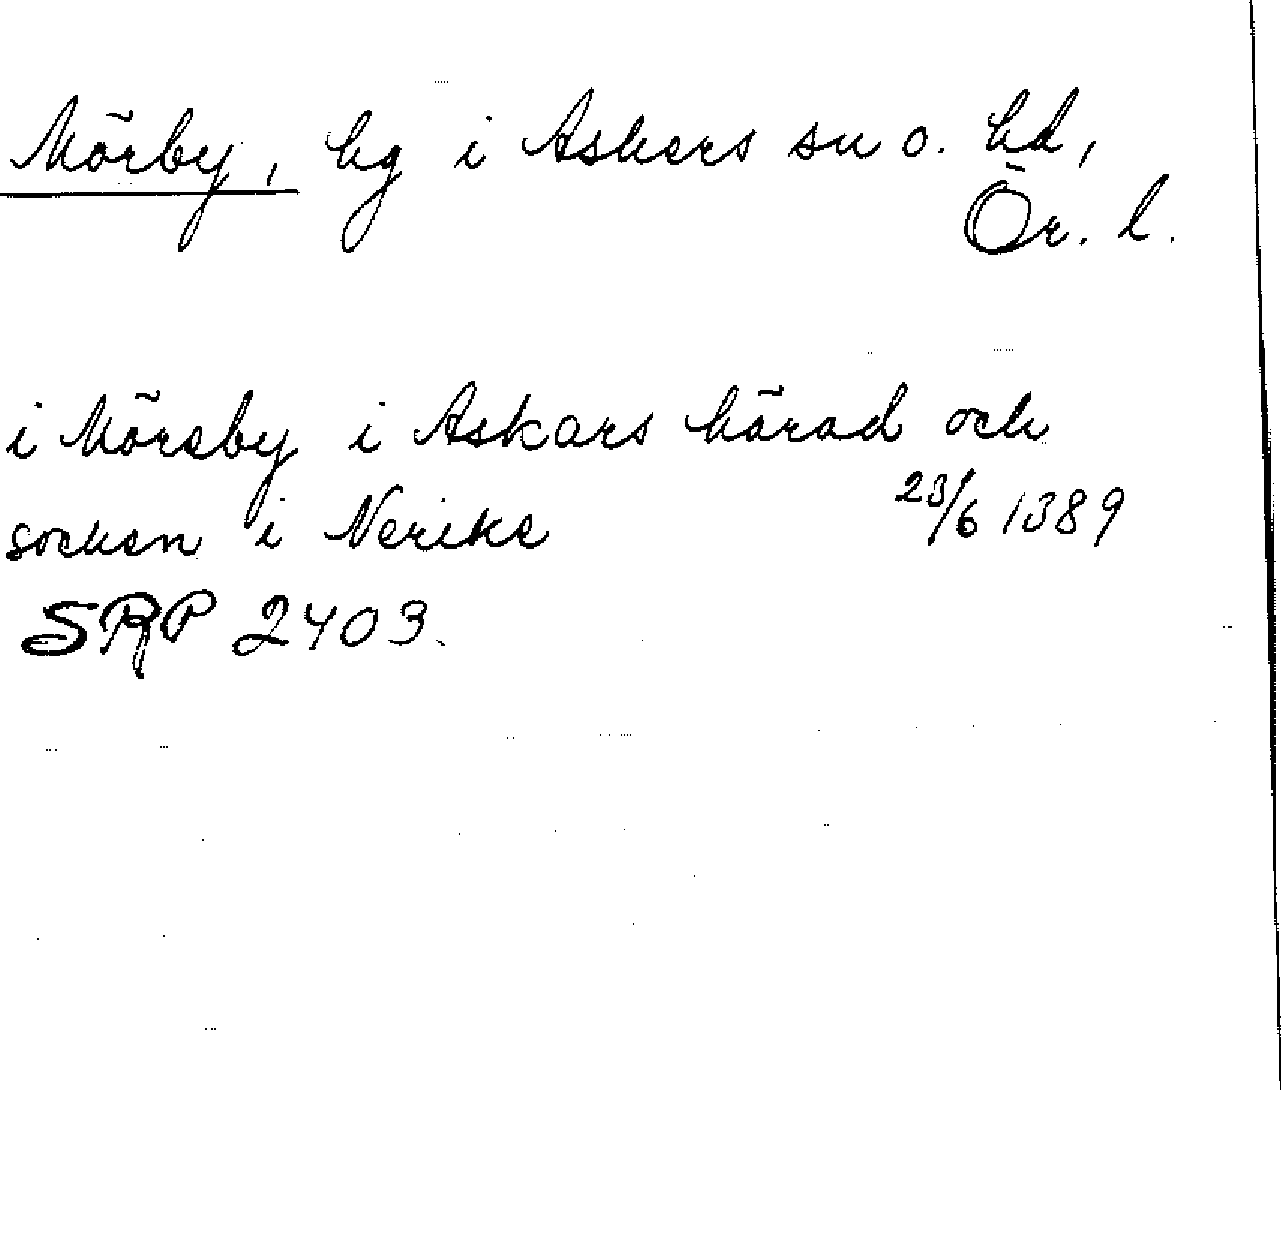 Mörby, hg i Askers sn o. hd,
Ör. l.
i Möreby i Askars härad och
socken i Nerike 23/6 1389
SRP 2403.